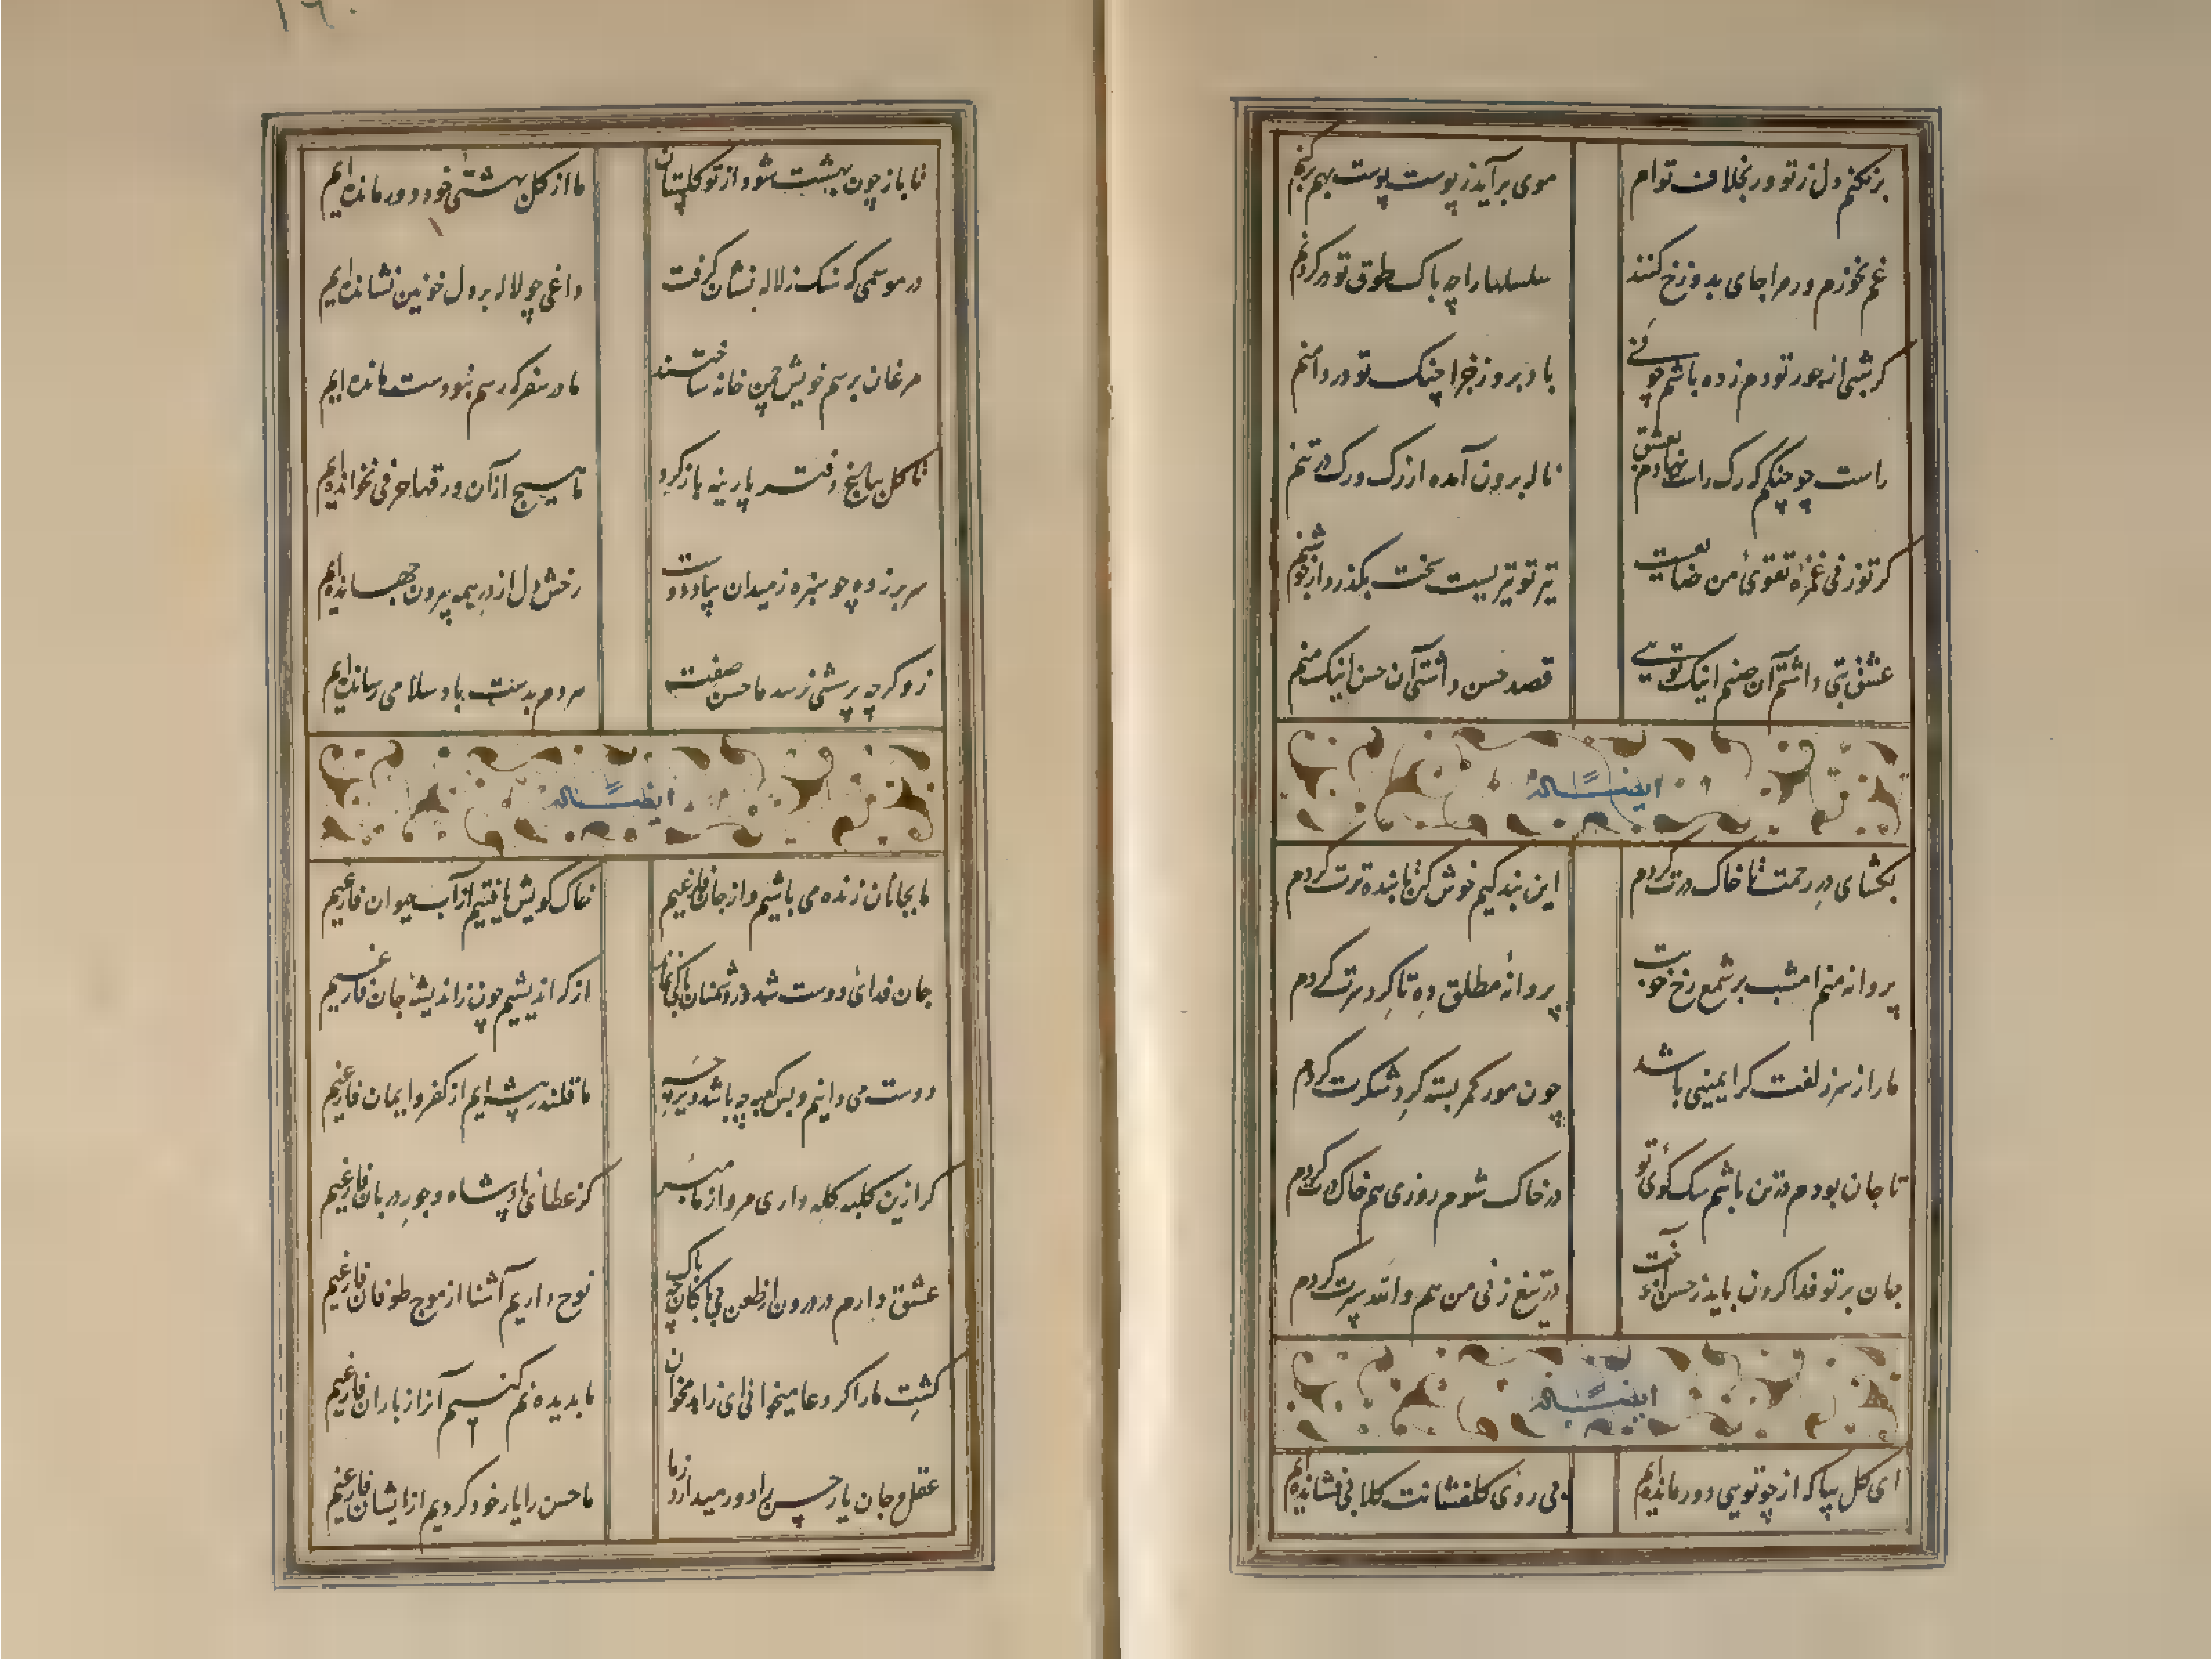 برنکنم دل ز تو ور بخلاف توام
موی برآید ز پوست پوست بهم برکنم
غم نخورم ور مرا جای بدوزخ کنند
سلسلها را چه باک طوق تو در کردنم
کر شبی از جور تو دم زده باشم چو نی
باد بروز جزا چنک تو در دامنم
راست چو چنکم که رک راست نهادم بعشق
ناله برون آمده از رک و رک در تنم
کر تو زنی غمزهٔ تقوی من ضایعست
تیر تو تیریست سخت بکذرد از جوشنم
عشق بتی داشتم آن صنم اینک تویی
قصد حسن داشتی آن حسن اینک منم
ایضاً له
بکشای در رحمت تا خاک درت کردم
این بند کیم خوش کن تا بنده ترت کردم
پروانه منم امشب بر شمع رخ خوبت
پروانهٔ مطلق ده تا کرد سرت کردم
ما را ز سر زلفت کر ایمنیی باشد
چون مور کمر بسته کرد شکرت کردم
تا جان بودم در تن باشم سک کوی تو
در خاک شوم روزی هم خاک درت کردم
جان بر تو فدا کردن باید ز حسن آموخت
ور تیغ زنی من هم والله سپرت کردم
ایضاً له
ای کل بیا که از چو تویی دور مانده‌ایم
بی روی کلفشانت کلابی فشانده‌ایم
تا باز چون بهشت شود از تو کلستان
ما از کل بهشتی خود دور مانده‌ایم
در موسمی که سنک ز لاله نشان کرفت
داغی چو لاله بر دل خونین نشانده‌ایم
مرغان برسم خویش چمن خانه ساختند
ما در سفر که رسم نبودست مانده‌ایم
تا کل بباغ دفتر پارینه باز کرد
ما هیچ از آن ورقها حرفی نخوانده‌ایم
سر برزده چو سبزه ز میدان پیاده دوست
رخش دل از در همه بیرون جهانده‌ایم
زو کرچه پرسشی نرسد ما حسن صفت
هر دم بدست باد سلامی رسانده‌ایم
ایضاً له
ما بجانان زنده می باشیم و از جان فارغیم
خاک کویش یافتیم از آب حیوان فارغیم
جان فدای دوست شد در دشمنان باکی نماند
از که اندیشیم چون ز اندیشهٔ جان فارغیم
دوست می دانیم و بس کعبه چه باشد دیر چه
ما قلندر پیشه‌ایم از کفر و ایمان فارغیم
کر ازین کلبه کله داری مرو از ما مبر
کز عطای پادشاه و جور دربان فارغیم
عشق دارم در درون از طعن بی باکان چه باک
نوح داریم آشنا از موج طوفان فارغیم
کشت ما را کر دعا میخوانی ای زاهد مخوان
ما بدیده نم کنیم آنرا ز باران فارغیم
عقل و جان یار حسن را دور میدارد ز ما
ما حسن را یار خود کردیم از ایشان فارغیم